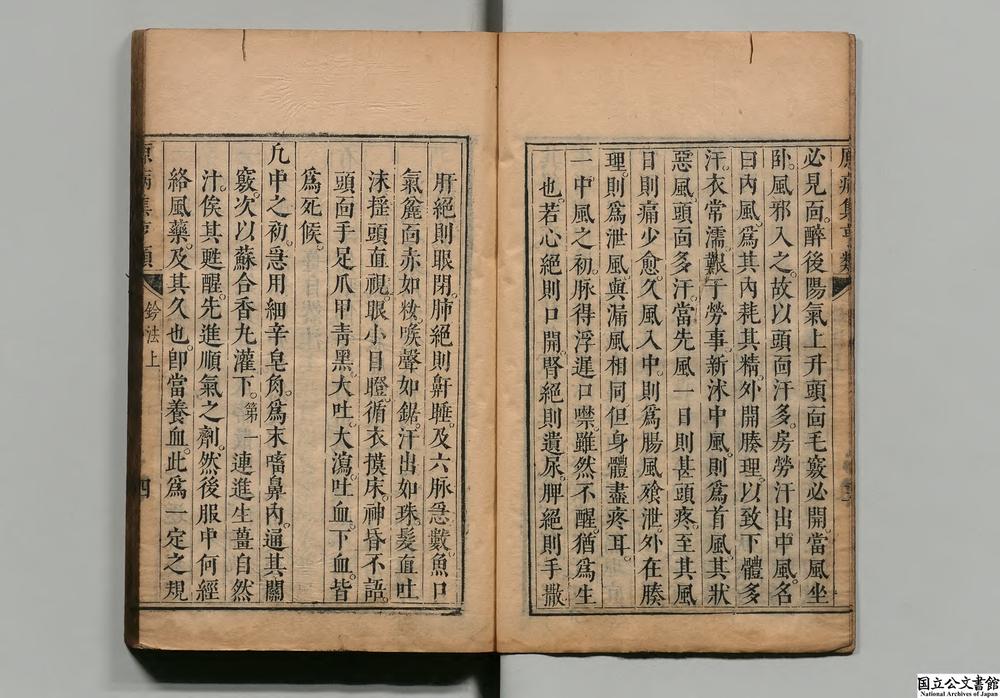 必見面。醉後陽氣上升頭面毛竅必開。當風坐
卧。風邪入之。故以頭面汗多。房勞汗出中風。名
曰內風。爲其內耗其精外開腠理。以致下體多
汗。衣常濡。艱于勞事。新沐中風。則爲首風。其狀
惡風。頭面多汗。當先風一日則甚。頭疼。至其風
日則痛少愈。久風入中。則爲腸風飱泄。外在腠
理。則爲泄風。與漏風相同。但身體盡疼耳。
一中風之初。脉得浮遲。口噤。雖然不醒。猶爲生
也。若心絕則口開。腎絕則遺尿。脾絕則手撒
肝絕則眼閉。肺絕則鼾睡。及六脉急數。魚口
氣麄。面赤如妝。喉聲如鋸。汗出如珠。髮直吐
沫。揺頭直視。眼小目瞪。循衣摸床。神昏不語
頭面手足爪甲青黑。大吐。大瀉。吐血。下血。皆
爲死候。
凡中之初。急用細辛皂角。爲末嗃鼻內。通其關
竅。次以蘇合香丸灌下。第一連進生薑自然
汁。俟其甦醒。先進順氣之劑。然後服中何經
絡風藥。及其久也。卽當養血。此爲一定之規
原病集亨類
鈐法上
四
国立公文書館
National Archives of Japan